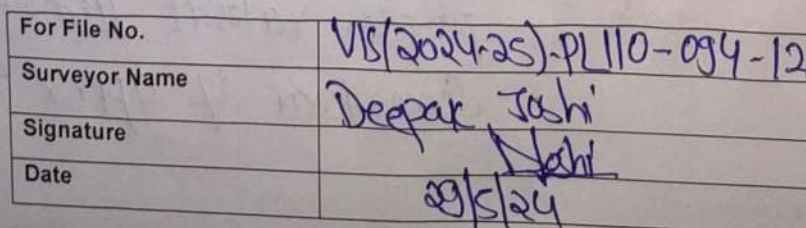 For File No. VIS(2024-25)-PL110-094-12
Surveyor Name Deepak Joshi
Signature Joshi
Date 29/5/24